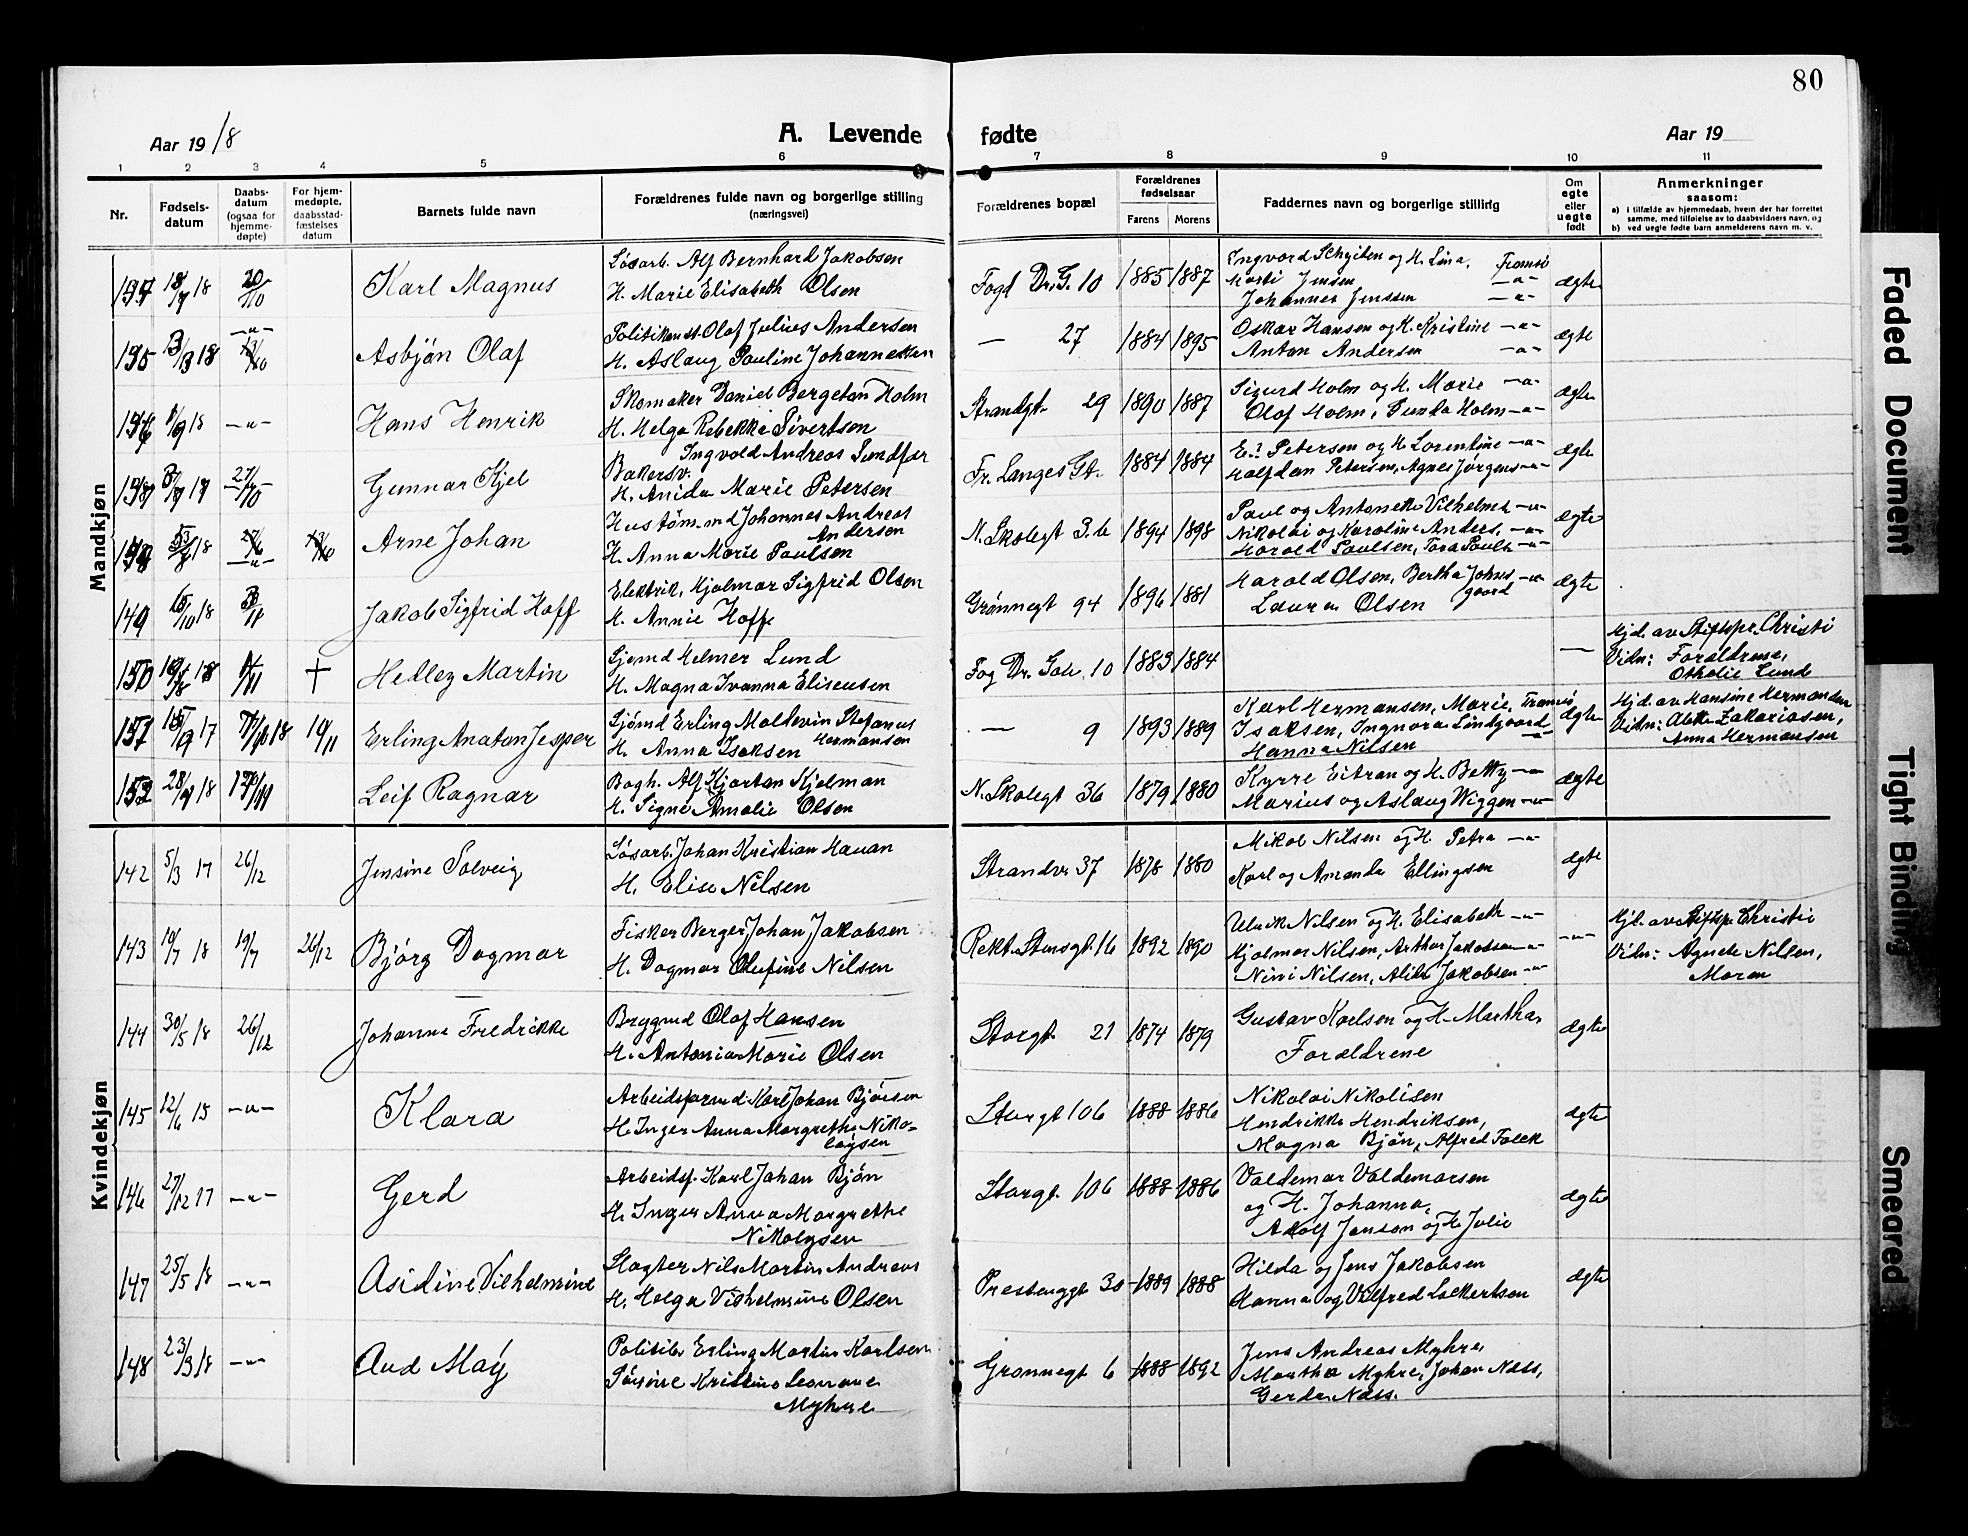 80
Aar 1918
A. Levende fødte
Aar 19
1 2 3 4 5 6 7 8 9 10 11
Nr.
Fødsels-
datum
Daabs-
datum
(ogsaa for
hjemme-
døpte)
For hjem-
medøpte,
daabsstad-
fæstelses
datum
Barnets fulde navn
Forældrenes fulde navn og borgerlige stilling
(næringsvei)
Forældrenes bopæl
Forældrenes
fødselsaar
Farens Morens
Faddernes navn og borgerlige stilling
Om
egte
eller
uegte
født
Anmerkninger
saasom:
a) i tilfælde av hjemmedaab, hvem der har forrettet
samme, med tilføielse av to daabsvidners navn, og
b) ved uegte fødte barn anmelderens navn m. v.
Mandkjøn
Karl Magnus
Løsarb. Alf Bernhard Jakobsen
H. Marie Elisabeth Olsen
Fogd Dr. G. 10 1885 1887
Ingvord og H. Lina, Tromsø
Jensen -"-
Johannes Jenssen -"-
ægte
Asbjøn Olaf
Olaf Julius Andersen
H. Aslaug Pauline Johannessen
— 27 1884 1895
Oskar Hansen og H. Kristine -"-
Anton Andersen -"-
ægte
-"-
Hans Henrik
Skomaker Daniel Bergeton Holm
H. Helga Rebekka Sivertsen
Strandgt. 29 1890 1887
Sigurd Holm og H. Marie -"-
Olaf Holm, Gunda Holm -"-
ægte
Gunnar Kjel
Bakersv. Ingvold Andreas Sundfær
H. Anida Marie Petersen
Fr. Langes Gt. 1884 1884
Petersen og H. Lorentine -"-
Halfdan Petersen, Agnes Jørgens -"-
ægte
Arne Johan
Johannes Andreas
Andersen
H. Anna Marie Paulsen
N. Skolegt 3.b 1894 1898
Paul og Antonette Vilhelms -"-
Nikolai og Karoline Anders, -"-
Harald Paulsen, Tora Pauls -"-
ægte
149 15/10 18
Jakob Sigfrid Hoff
Elektrik. Hjalmar Sigfrid Olsen
H. Annie Hoff
Grønnegt 94 1896 1881
Harald Olsen, Bertha Johns -"-
gaard
Laura Olsen
ægte
150
†
Hedley Martin
Sjømd Helmer Lund
H. Magna Ivanna Eliseusen
Fog Dr. Gt. 10 1883 1884
—
Hjd. av Stiftspr. Christi
Vidn: Forældrene,
Othelie Lund
151 19/11
Erling Anaton Jesper
Sjømd Erling Moldevin Stefanus
Hermansen
H. Anna Isaksen
— 9 1893 1889
Karl Hermansen, Marie, Tromsø
Isaksen, Ingvora Lindgaard -"-
Hanna Nilsen
ægte
Hjd. av Hansine Hermansen
Vidn: Alette Zakariasen,
Anna Hermansen
152 28/9 18
Leif Ragnar
Bogh. Alf Kjartan Kjelman
H. Signe Amalie Olsen
N. Skolegt 36 1879 1880
Kyrre Eitran og H. Betty -"-
Marius og Aslaug Wiggen -"-
ægte
Kvindekjøn
142 5/3 17 26/12
Jensine Solveig
Løsarb. Johan Kristian Hauan
H. Elise Nilsen
Strandv 37 1878 1880
Mikal Nilsen og H. Petra -"-
Karl og Amanda Ellingsen
ægte
143 19/7 18 19/7 26/12
Bjørg Dagmar
Fisker Berger Johan Jakobsen
H. Dagmar Olufine Nilsen
Rekt. Stensgt 16 1892 1890
Ulrik Nilsen og H. Elisabeth -"-
Hjalmar Nilsen, Arthur Jakobsen -"-
Nini Nilsen, Alida Jakobsen -"-
-"-
Hjd. av Stiftspr Christie
Vidn: Agnete Nilsen,
Moren
144 30/5 18 26/12
Johanne Fredrikke
Bryggmd Olaf Hansen
H. Antonia Marie Olsen
Storgt. 21 1874 1879
Gustav Karlsen og H. Martha,
Forældrene
ægte
145 12/6 15 -"-
Klara
Arbeidsformd Karl Johan Bjørsen
H. Inger Anna Margrethe Niko-
laysen
Storgt 106 1888 1886
Nikolai Nikolisen
Hendrikke Hendriksen,
Magna Bjøn, Alfred Falck
ægte
146 27/12 17 -"-
Gerd
Arbeidsf. Karl Johan Bjøn
H. Inger Anna Margrethe
Nikolaysen
Storgt. 106 1888 1886
Valdemar Valdemarsen
og H. Johanna,
Adolf Janson og H. Julie
ægte
147 25/5 18 -"-
Asidine Vilhelmine
Slagter Nils Martin Andreas
H. Helga Vilhelmine Olsen
Prestenggt 30 1889 1888
Hilda og Jens Jakobsen
Hanna og Vilfred Lockertsen
ægte
148 23/3 18 -"-
Aud Maÿ
Erling Martin Karlsen
Kristine Leonore
Myhre
Grønnegt 6 1888 1892
Jens Andreas Myhre
Martha Myhre, Johan Næss,
Gerda Næss.
Faded Document
Tight Binding
Smeared